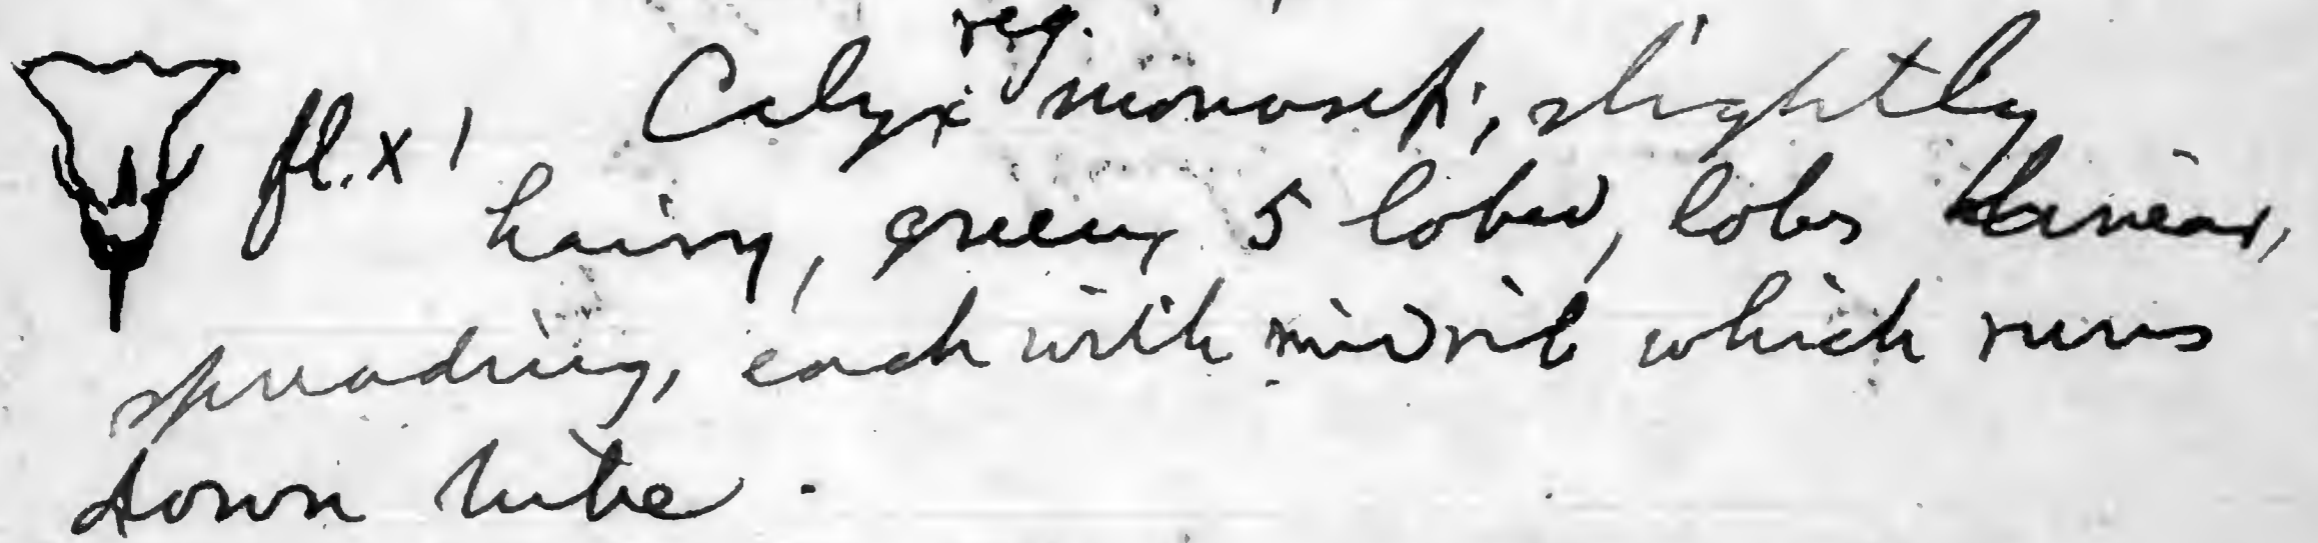 reg.
fl. x 1 Calyx monosep., slightly
hairy, green, 5 lobed, lobes linear,
spreading, each with midrib which runs
down tube.